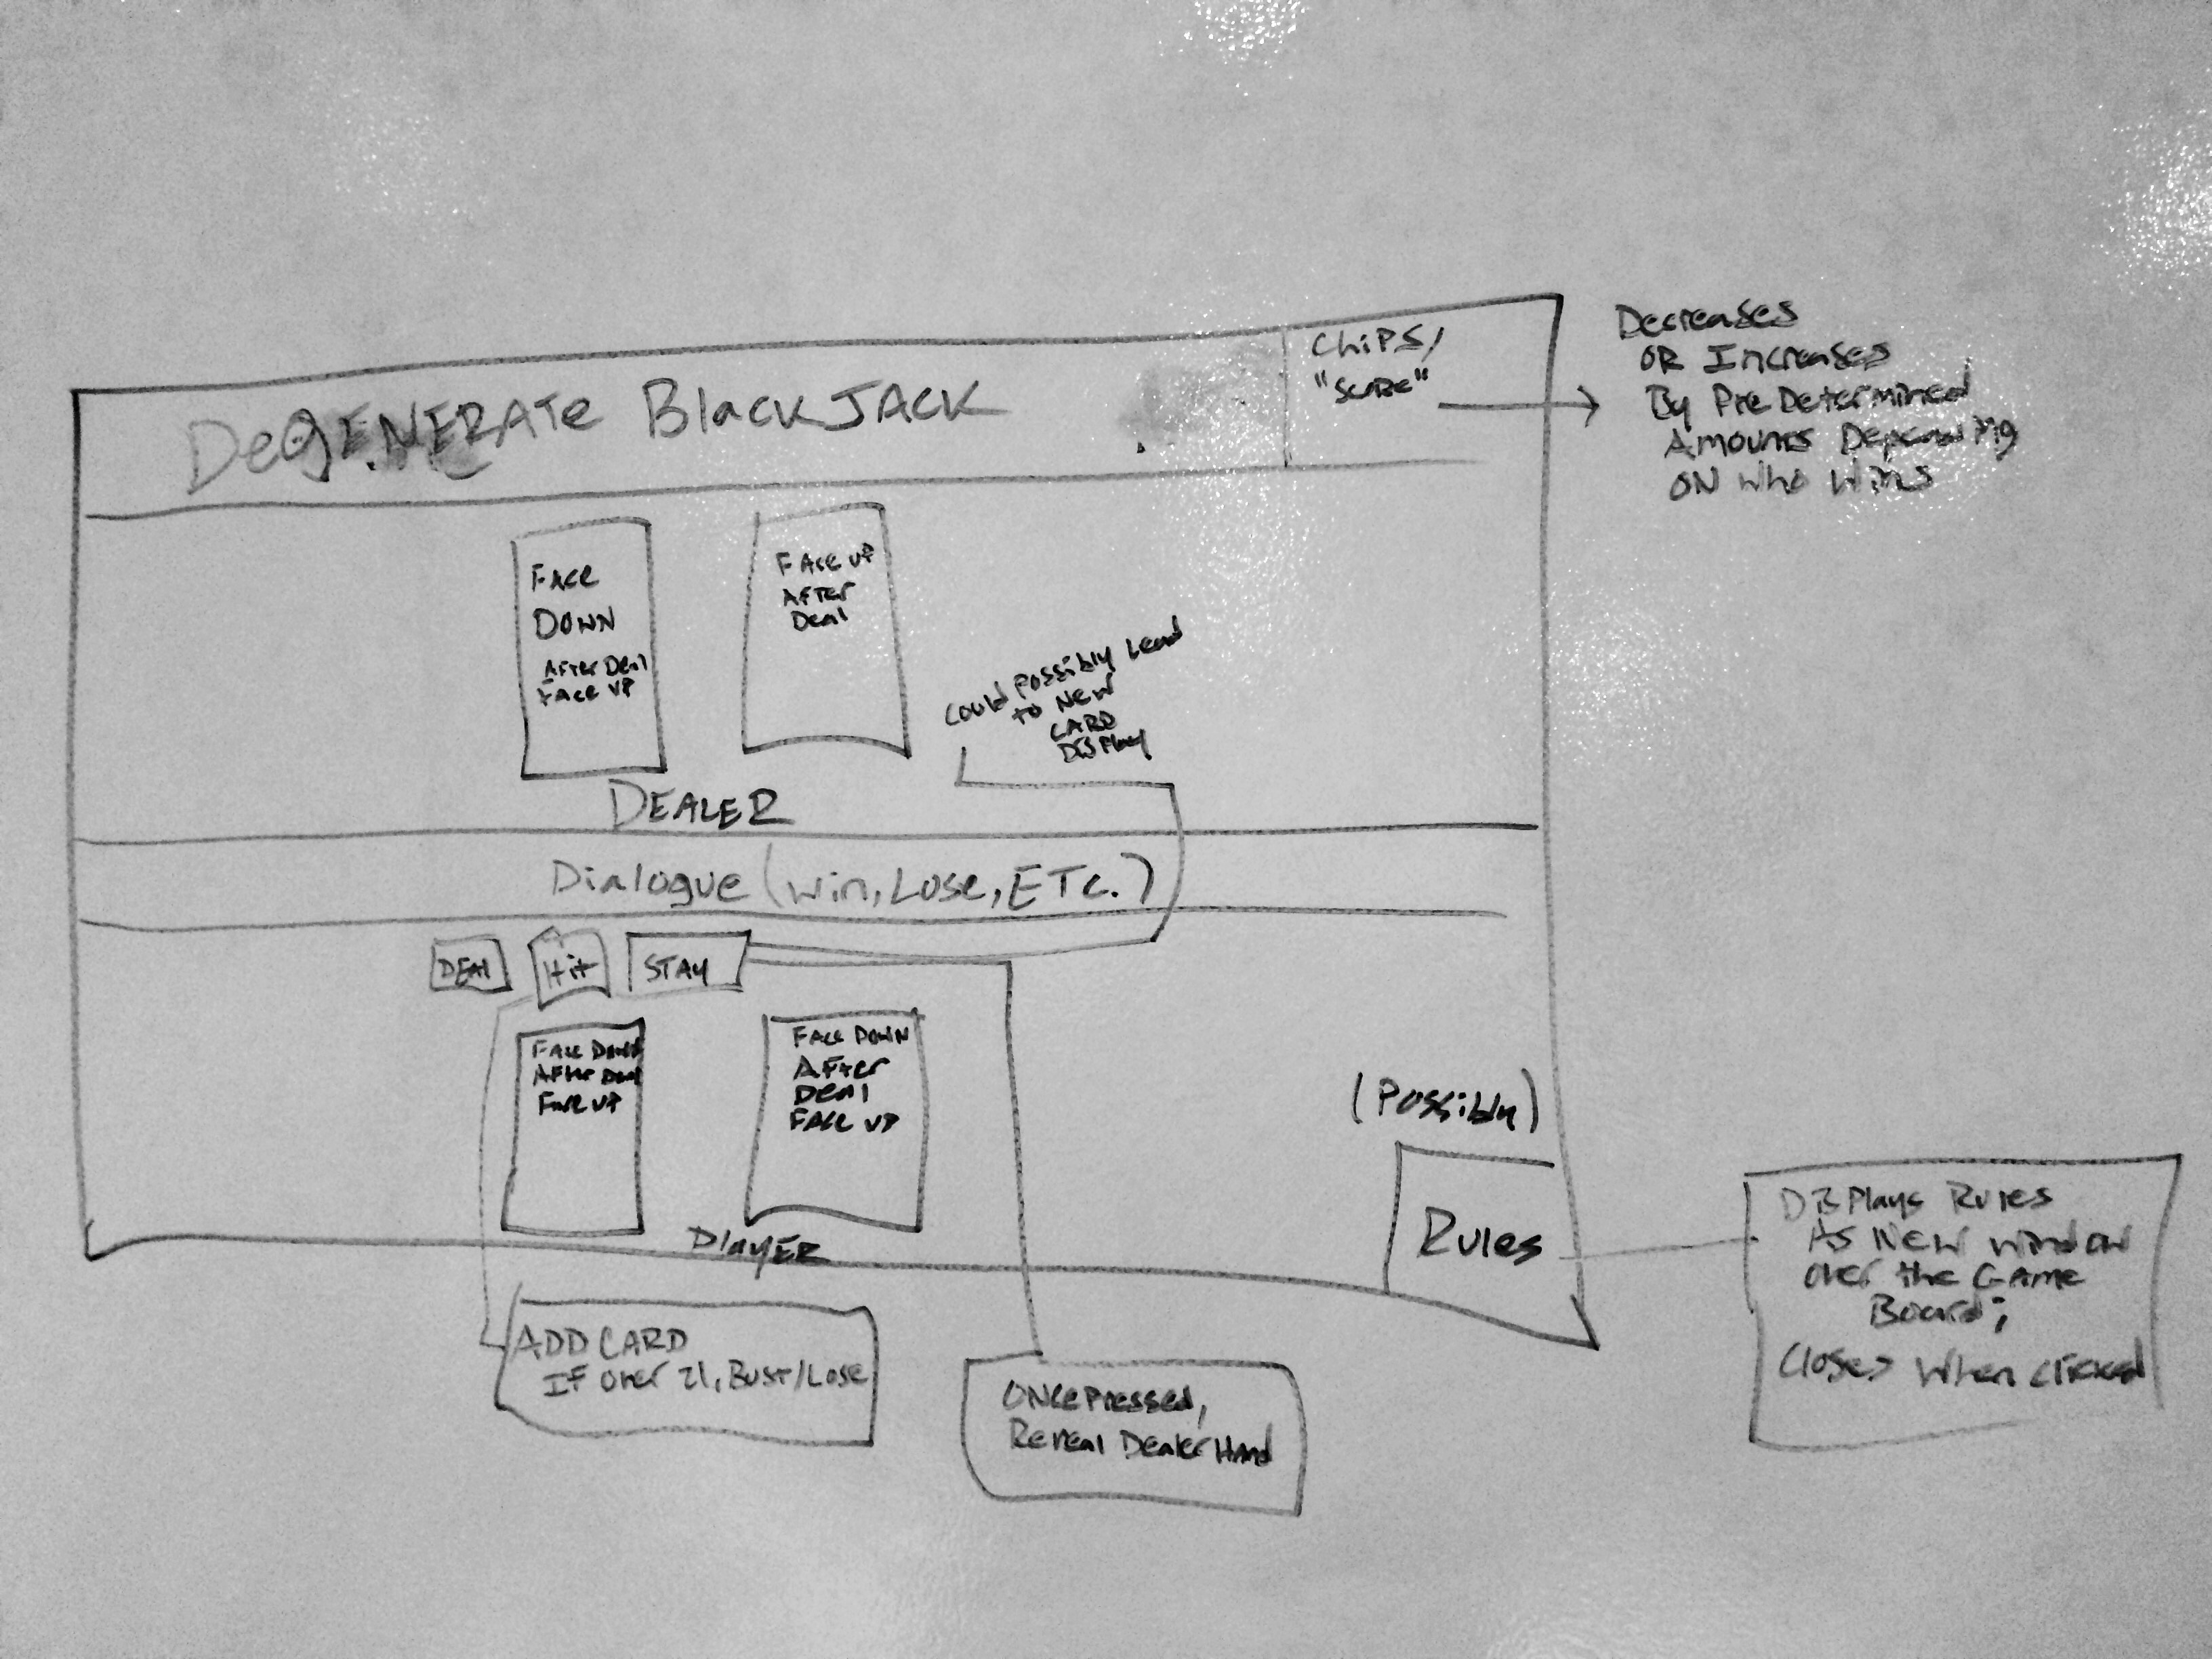 DeGENERATe BlackJACK
ChiPS/
"SCORE"
Decreases
OR Increases
By PreDetermined
Amounts Depending
ON Who Wins
FACe
DOWN
After Deal
Face UP
FAce UP
AFTer
Deal
Could Possibly Lead
to New
CARD
Display
DEALER
Dialogue (Win, Lose, ETc.)
DEAl
Hit
STAY
FAce Down
AFter Deal
Face UP
FAce DOWN
AFter
Deal
FACe UP
PlayER
(Possibly)
Rules
Displays Rules
As New Window
over the Game
Board;
Closes When clicked
ADD CARD
If over 21, Bust/Lose
ONce Pressed,
Reveal Dealer Hand